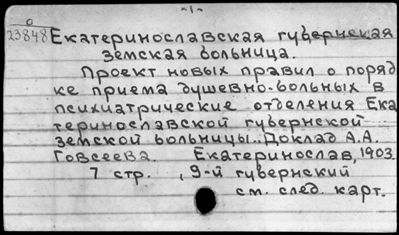 -1-
0
23848 Екатеринославская губернская
земская больница.
Проект новых правил о поряд
ке приема душевно-больных в
психиатрические отделения Ека
теринославской губернской
земской больницы. Доклад А.А.
Говсеева. Екатеринослав, 1903.
7 стр. , 9-й губернский
см. след. карт.